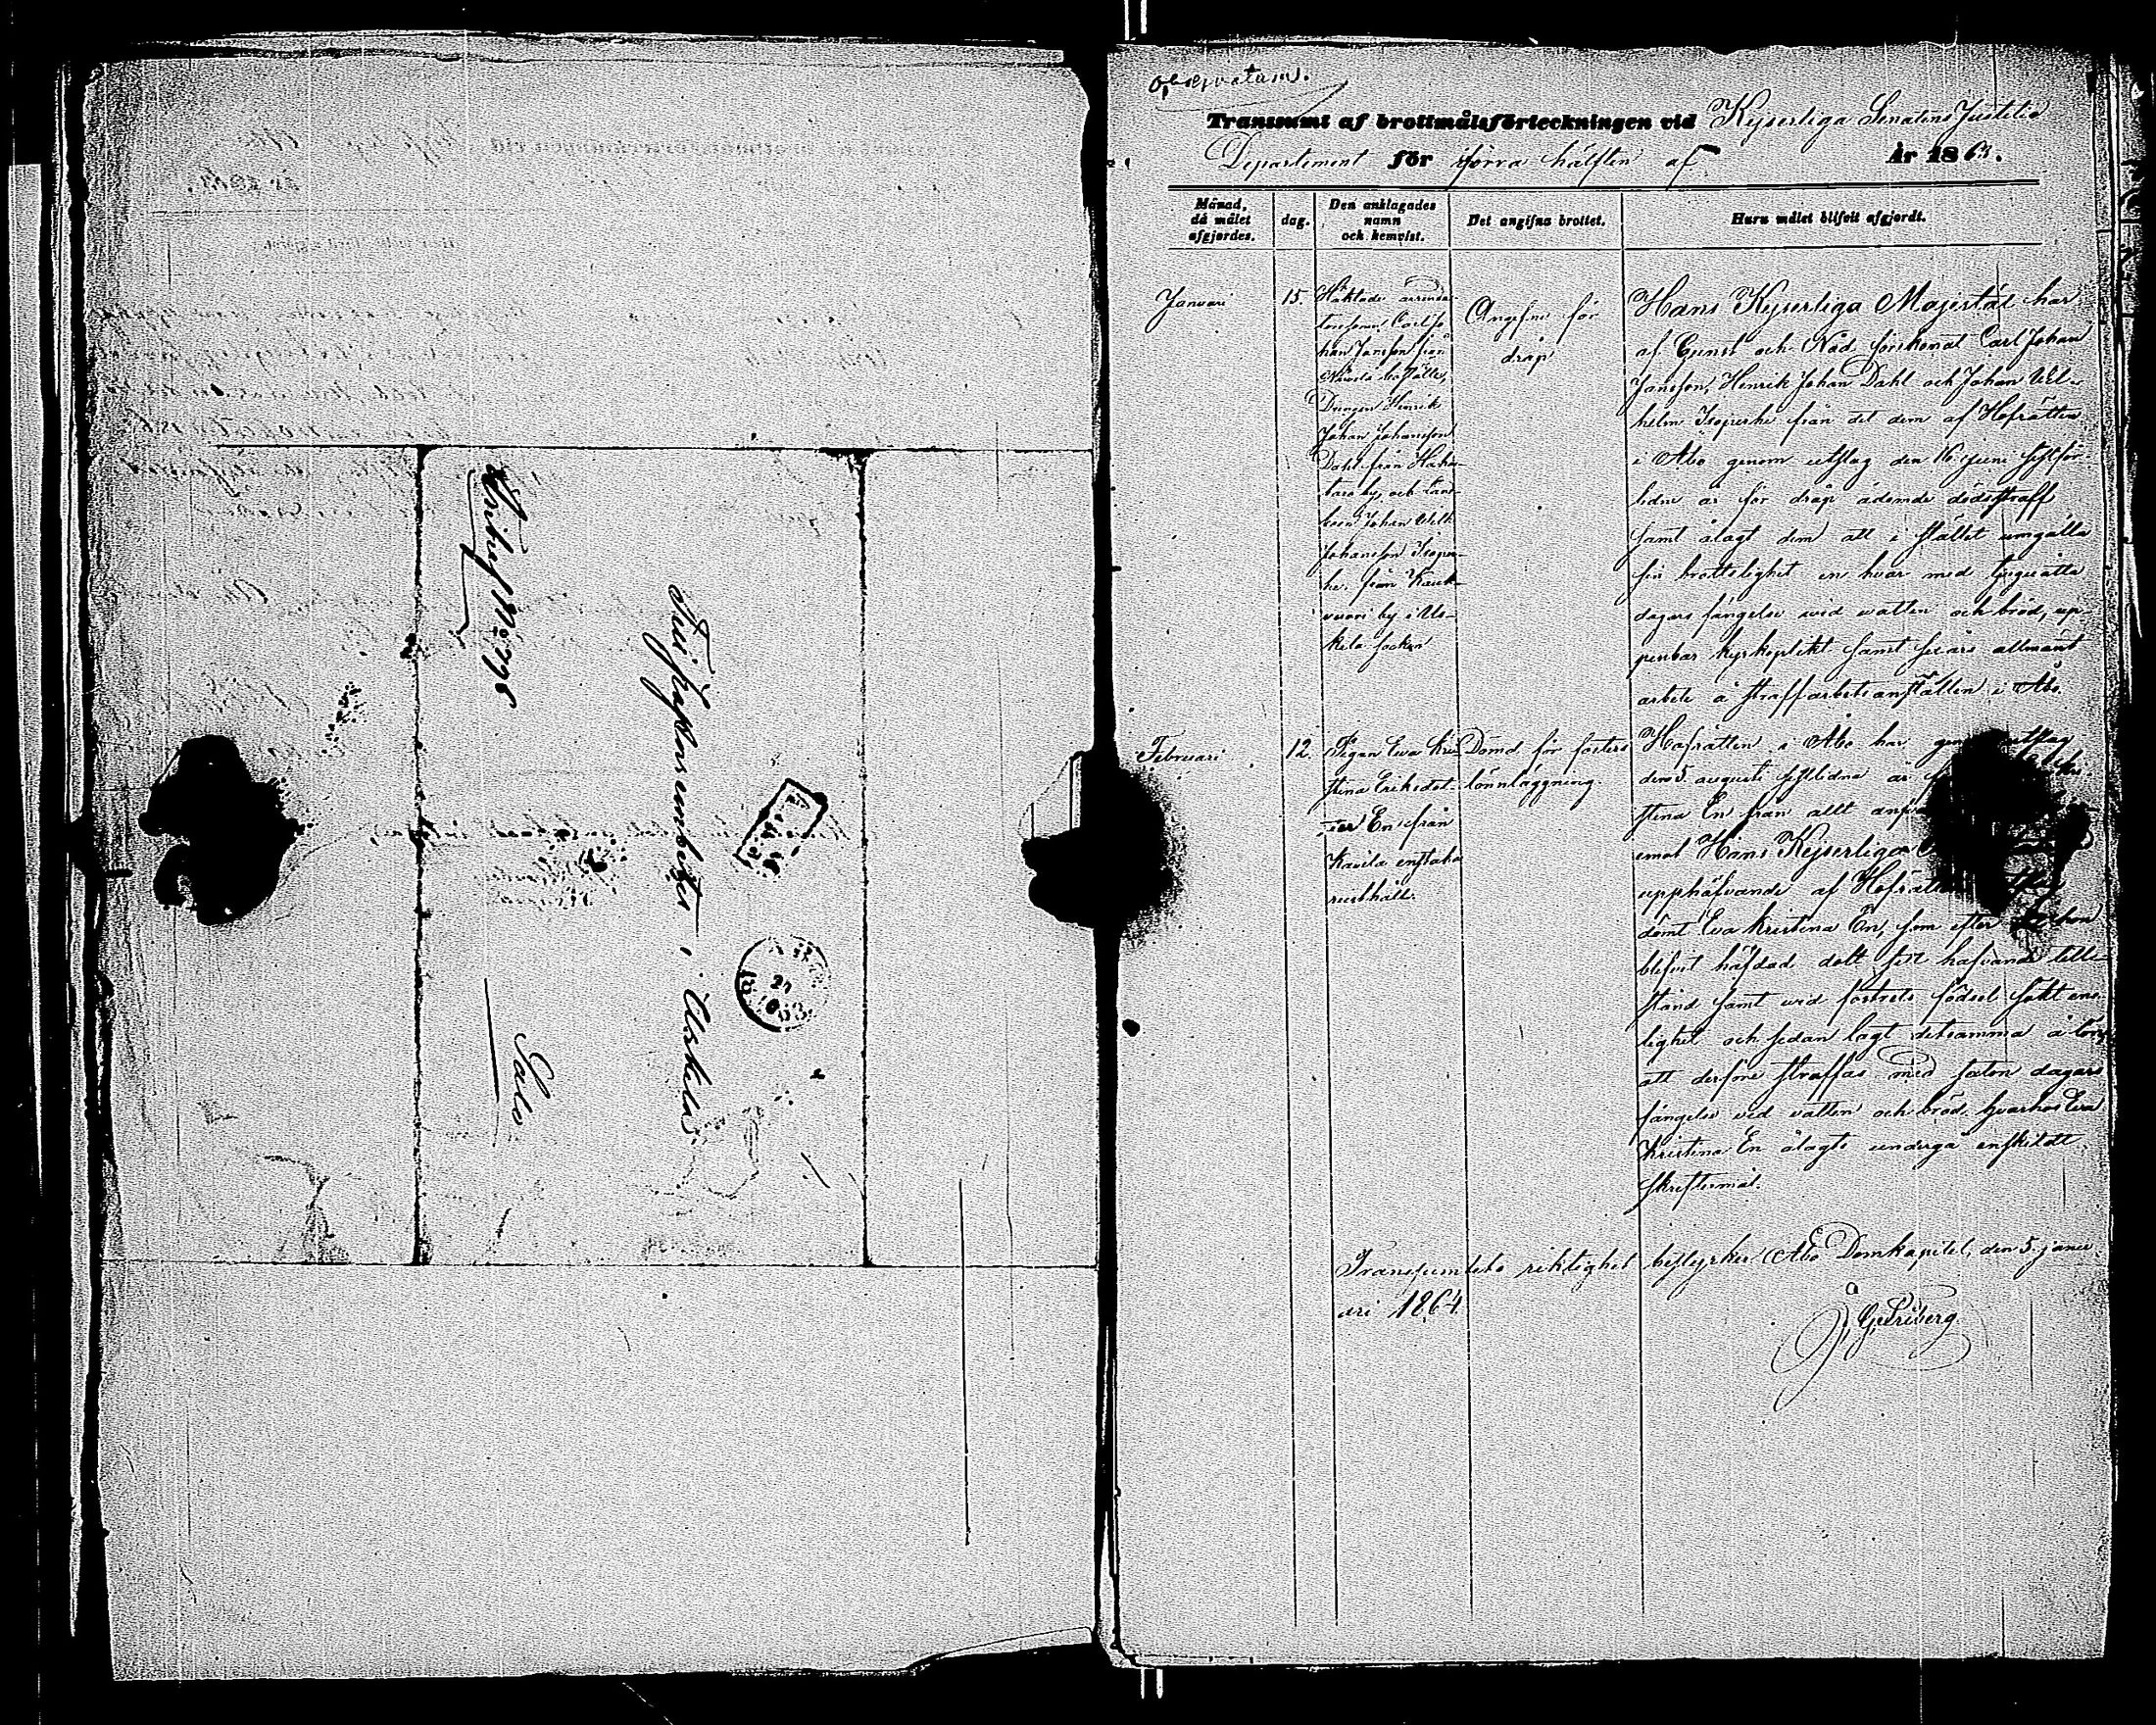 Embzs No 798
Till Pastorsembetet i Uskela
Salo
1863
Observatum.
Transsumt af brottmålsförteckningen vid Kejserliga Senatens Justitie
Departement för förra hälften af År 1863.
Månad, då målet afgjordes.
dag.
Den anklagades namn och hemvist.
Det angifna brottet.
Huru målet blifvit afgjordt.
Januari
15.
Häktade arrenda-
torssonen Carl Jo-
han Jansson från
boställe,
Drängen Henrik
Johan Johansson
Dahl från
by, och
Johan Wilh.
Johansson Isoper-
he från Kauk-
vuori by i Us-
kela socken
Angifne för
dråp
Hans Kejserliga Majestät har
af Gunst och Nåd förskonat Carl Johan
Jansson, Henrik Johan Dahl och Johan Wil-
helm Isoperhe från det dem af Hofrätten
i Åbo genom utslag den 16 juni sistför-
lidne år för dråp ådömde dödsstraff
samt ålagt dem att i stället umgälla
sin brottslighet en hvar med tjuguåtta
dagars fängelse wid watten och bröd, up-
penbar kyrkoplikt samt sexårs allmänt
arbete å straffarbetsanstalten i Åbo.
Februari
12.
Pigan Eva Kri-
stina Eriksdot-
ter En från
Kavila enstaka
rusthåll.
Dömd för fosters
lönnläggning.
Hofrätten i Åbo har genom utslag
den 5 augusti sistlidne år
stina En från allt
emot Hans Kejserliga
upphäfvande af Hofrättens
dömt Eva Kristina En, som efter det hon
blifvit häfdad dolt sitt hafvande till-
stånd samt wid fostrets födsel sökt ens-
lighet och sedan lagt detsamma å lönn,
att derföre straffas med saton dagars
fängelse vid vatten och bröd, hvarhos Eva
Kristina En ålagts undergå enskildt
skriftermål.
Transsumtets riktighet bestyrker Åbo Domkapitel, den 5. janu-
ari 1864.